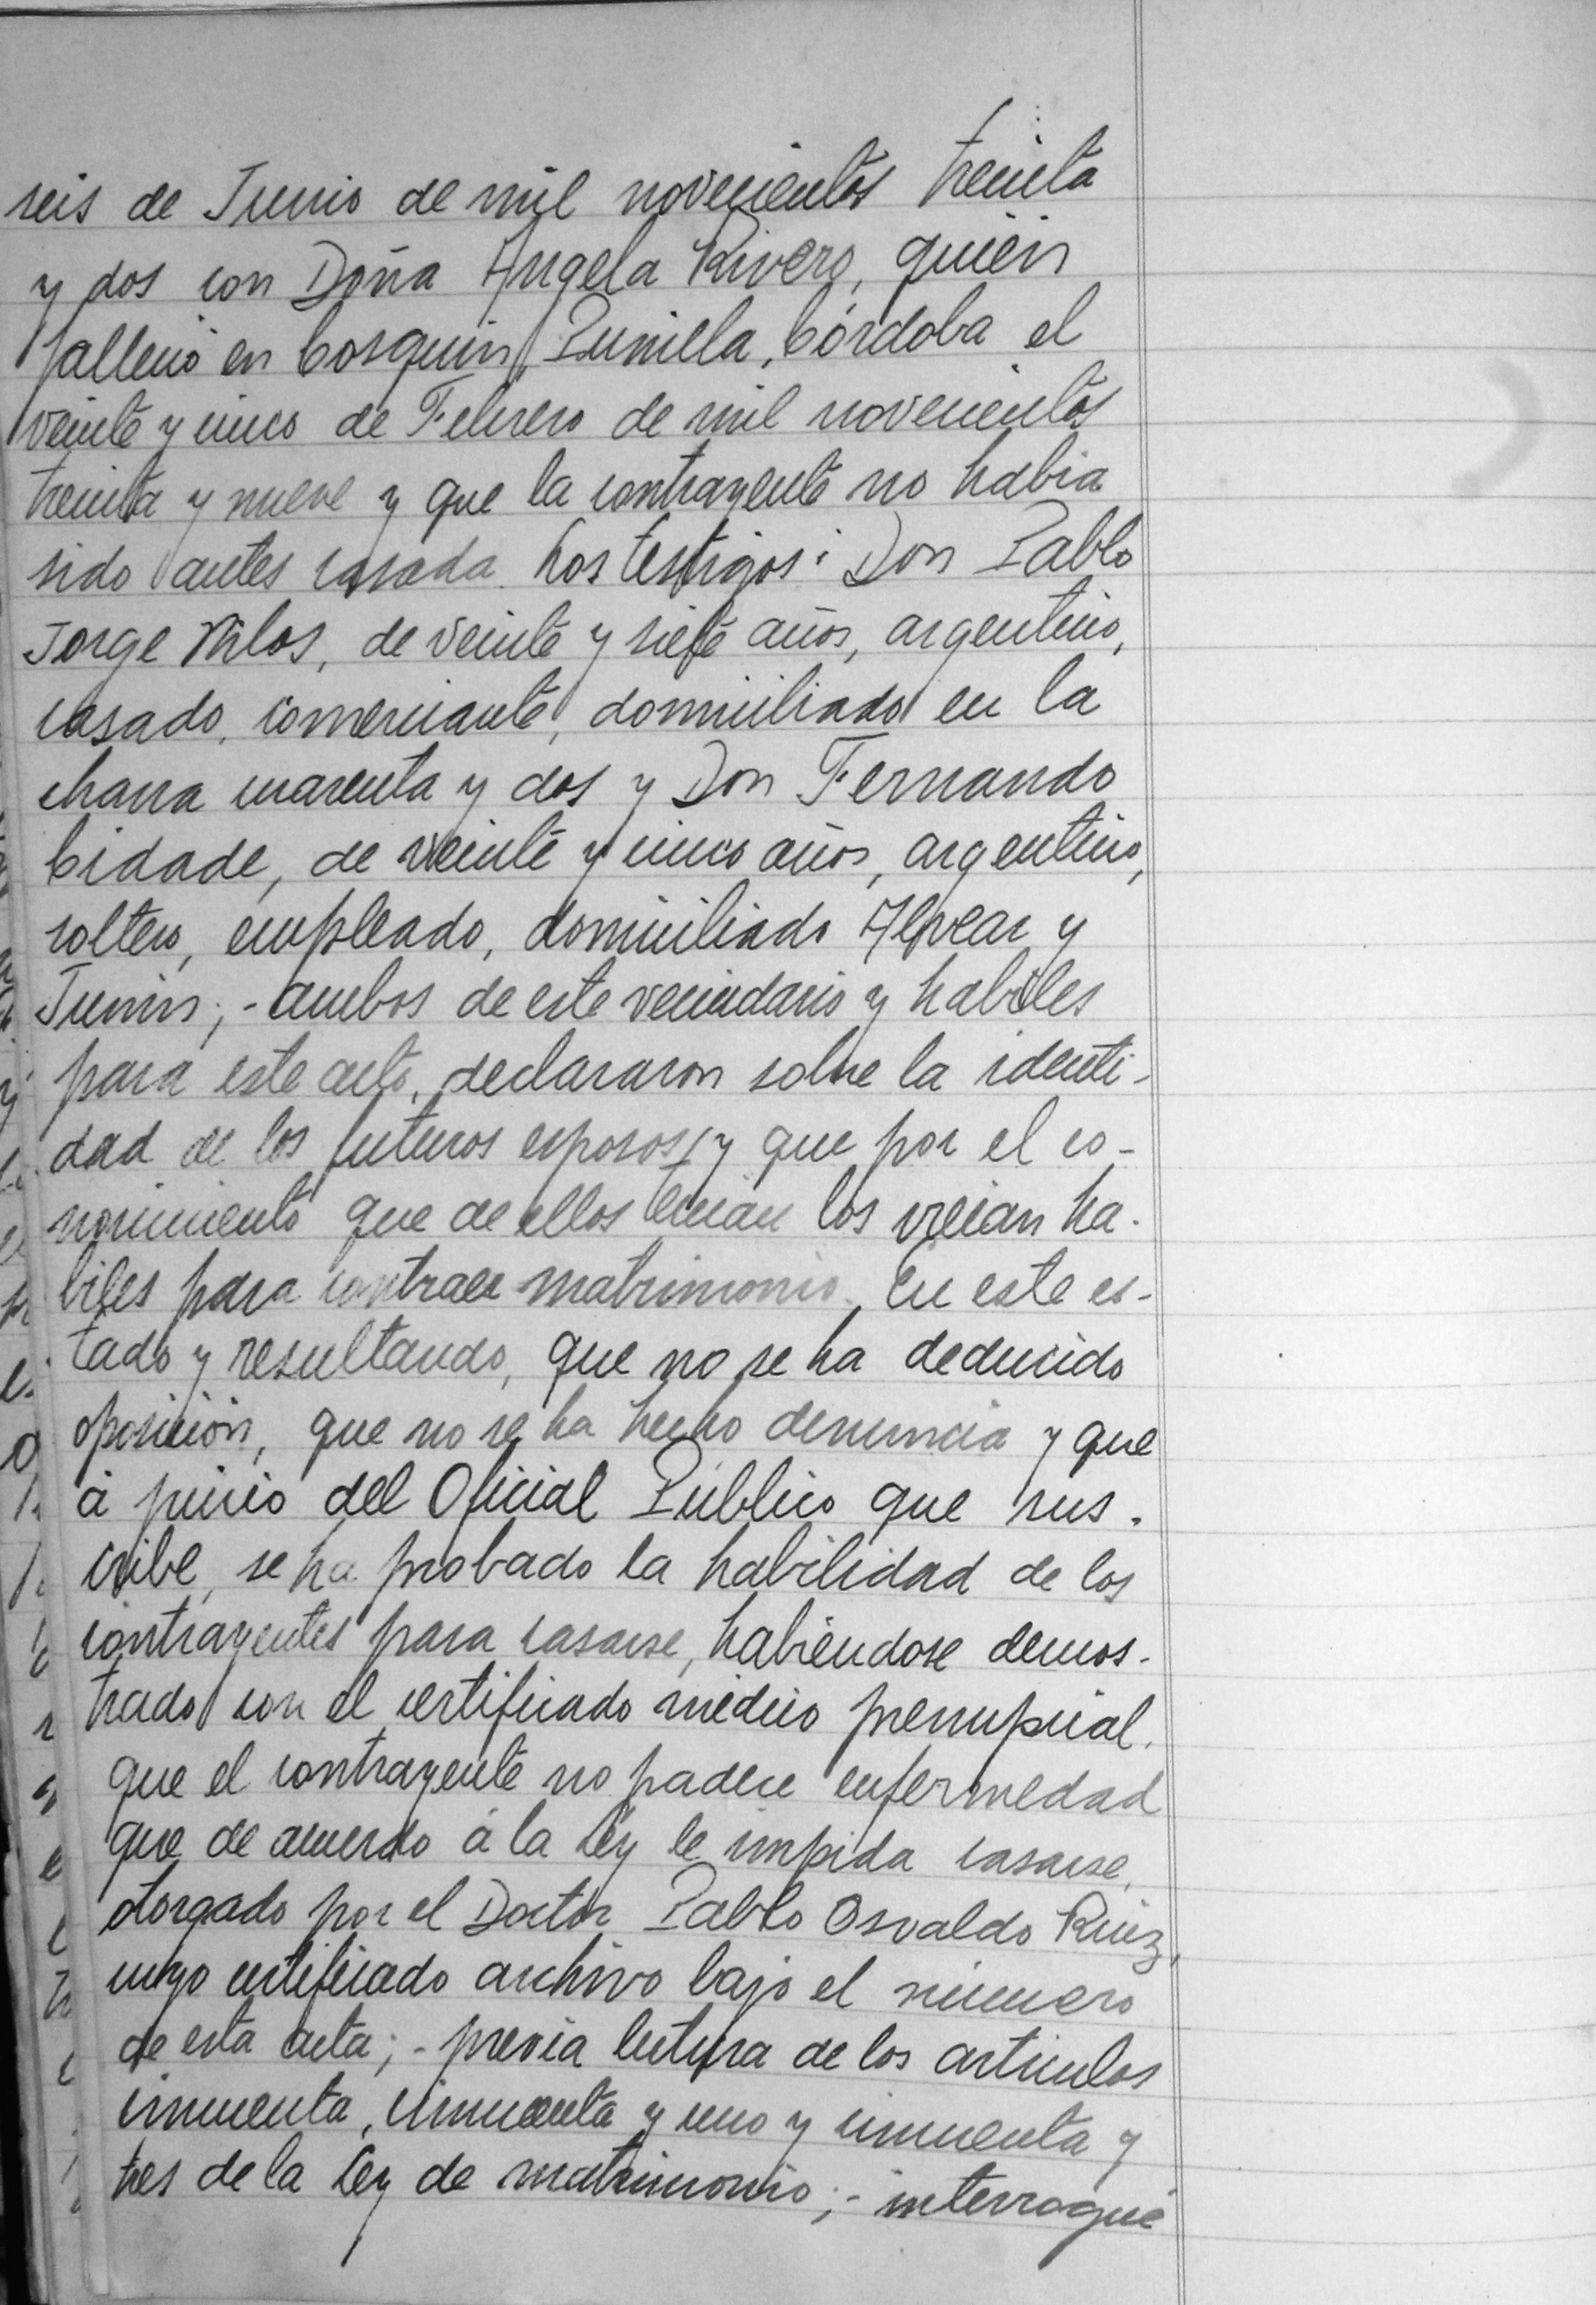 seis de Junio de mil novecientos treinta
y dos con Doña Angela Rivero, quién
falleció en Cosquin, Punilla, Córdoba el
veinte y cinco de Febrero de mil novecientos
treinta y nueve y que la contrayente no habia
sido antes casada. Los testigos: Don Pablo
Jorge Milos, de veinte y siete años, argentino,
casado, comerciante, domiciliado en la
chacra cuarenta y dos y Don Fernando
Cidade, de veinte y cinco años, argentino,
soltero, empleado, domiciliado Alvear y
Junin;- ambos de este vecindario y habiles
para este acto, declararon sobre la identi-
dad de los futuros esposos y que por el co-
nocimiento que de ellos tenian los creian ha-
biles para contraer matrimonio. En este es-
tado y resultando, que no se ha deducido
oposición, que no se ha hecho denuncia y que
á juicio del Oficial Público que sus-
cribe, se ha probado la habilidad de los
contrayentes para casarse, habiéndose demos-
trado con el certificado médico prenupcial,
que el contrayente no padece enfermedad
que de acuerdo á la Ley le impida casarse,
otorgado por el Doctor Pablo Osvaldo Ruiz,
cuyo certificado archivo bajo el número
de esta acta;- previa lectura de los articulos
cincuenta, cincuenta y uno y cincuenta y
tres de la Ley de matrimonio;- interrogué